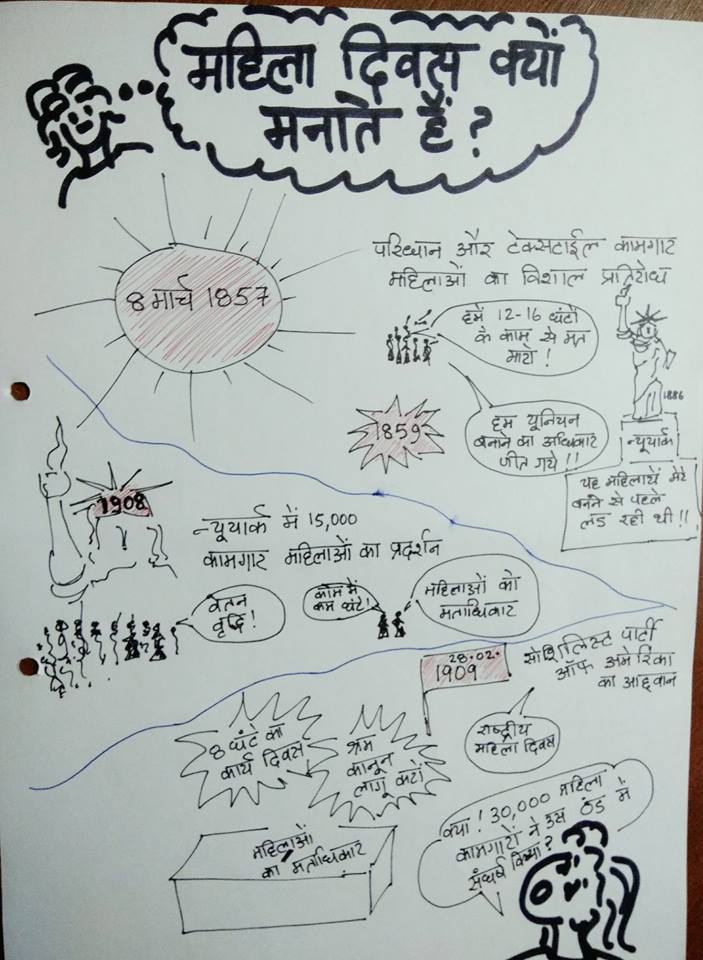 महिला दिवस क्यों
मनाते हैं?
8 मार्च 1857
परिधान और टेक्सटाईल कामगार
महिलाओं का विशाल प्रतिरोध
हमें 12-16 घंटों
के काम से मत
मारो!
1859
हम यूनियन
बनाने का अधिकार
जीत गये!!
1886
न्यूयार्क
यह महिलायें मेरे
बनने से पहले
लड रही थी!!
1908
न्यूयार्क में 15,000
कामगार महिलाओं का प्रदर्शन
वेतन
वृद्धि!
काम के
कम घंटे!
महिलाओं को
मताधिकार
28.02.
1909
सोशलिस्ट पार्टी
ऑफ अमेरिका
का आह्वान
राष्ट्रीय
महिला दिवस
8 घंटे का
कार्य दिवस
श्रम
कानून
लागू करों
महिलाओं
का मताधिकार
क्या! 30,000 महिला
कामगारों ने उस ठंड में
संघर्ष किया?